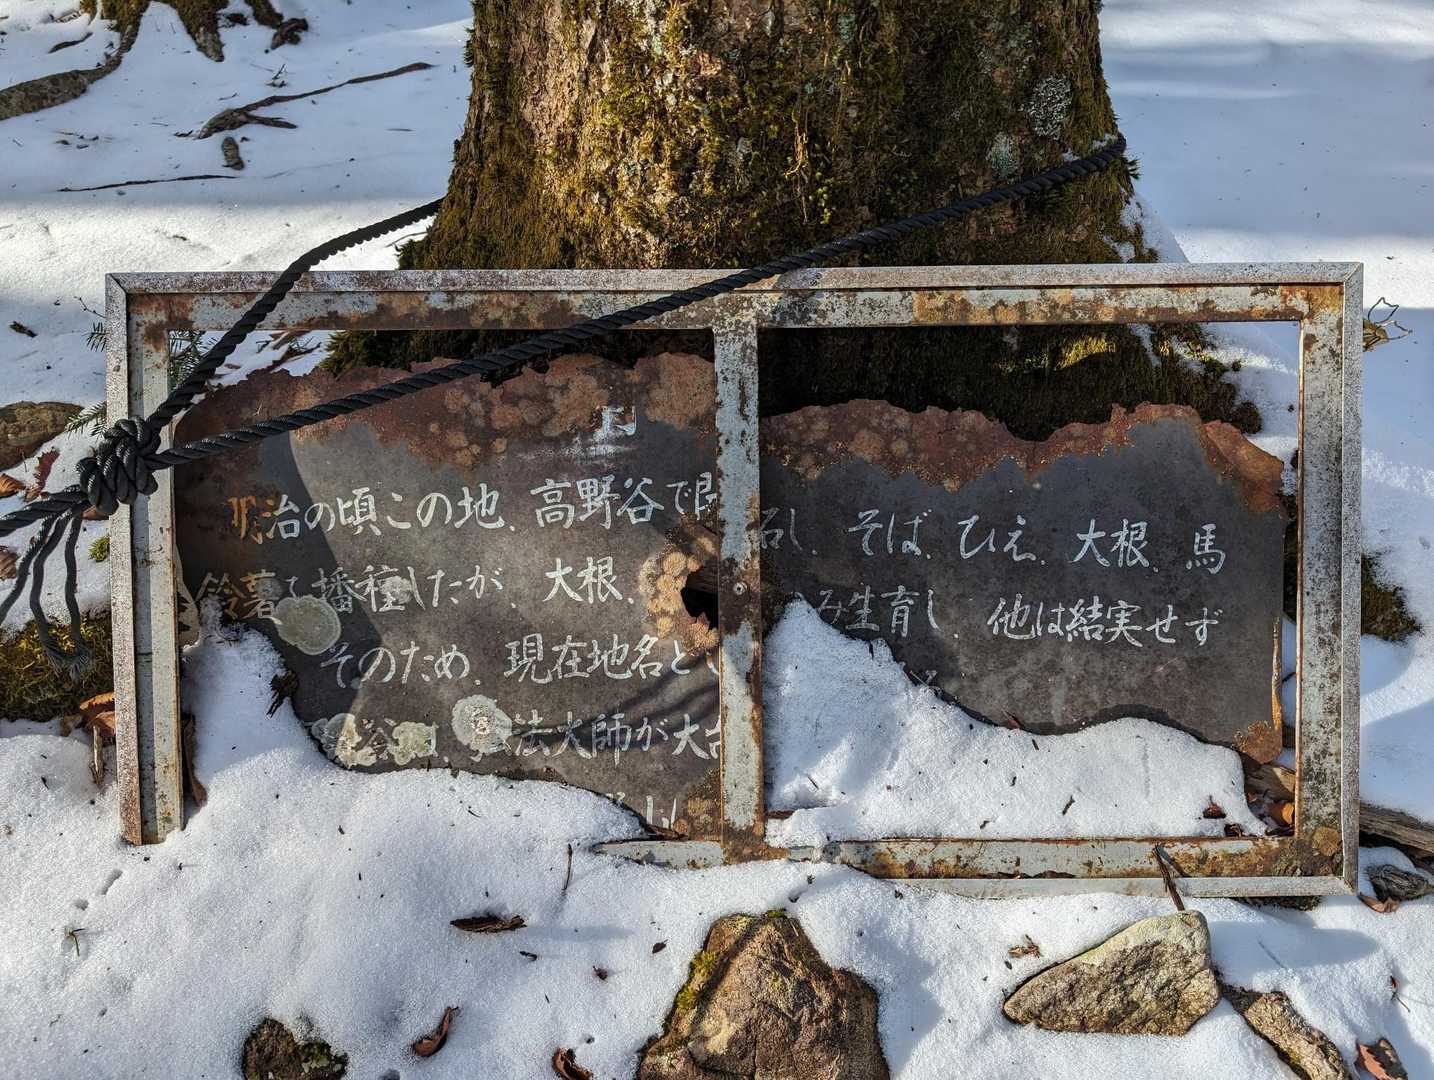 明治の頃この地、高野谷で開 石し、そば、ひえ、大根、馬
鈴薯を播種したが、大根、 み生育し、他は結実せず
そのため、現在地名と
谷は、弘法大師が大台